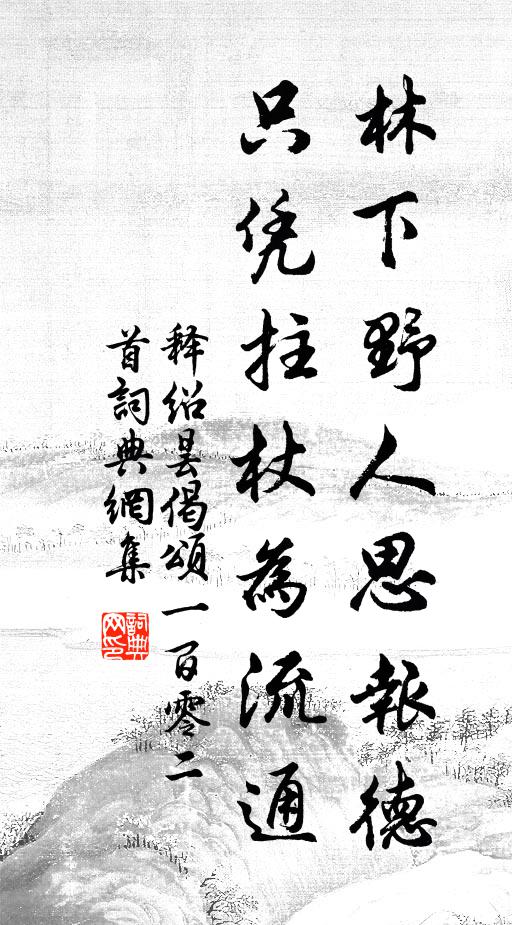 林下野人思報德
只凭拄杖為流通
释绍昙偈頌一百零二
首詞典網集
詞典网印